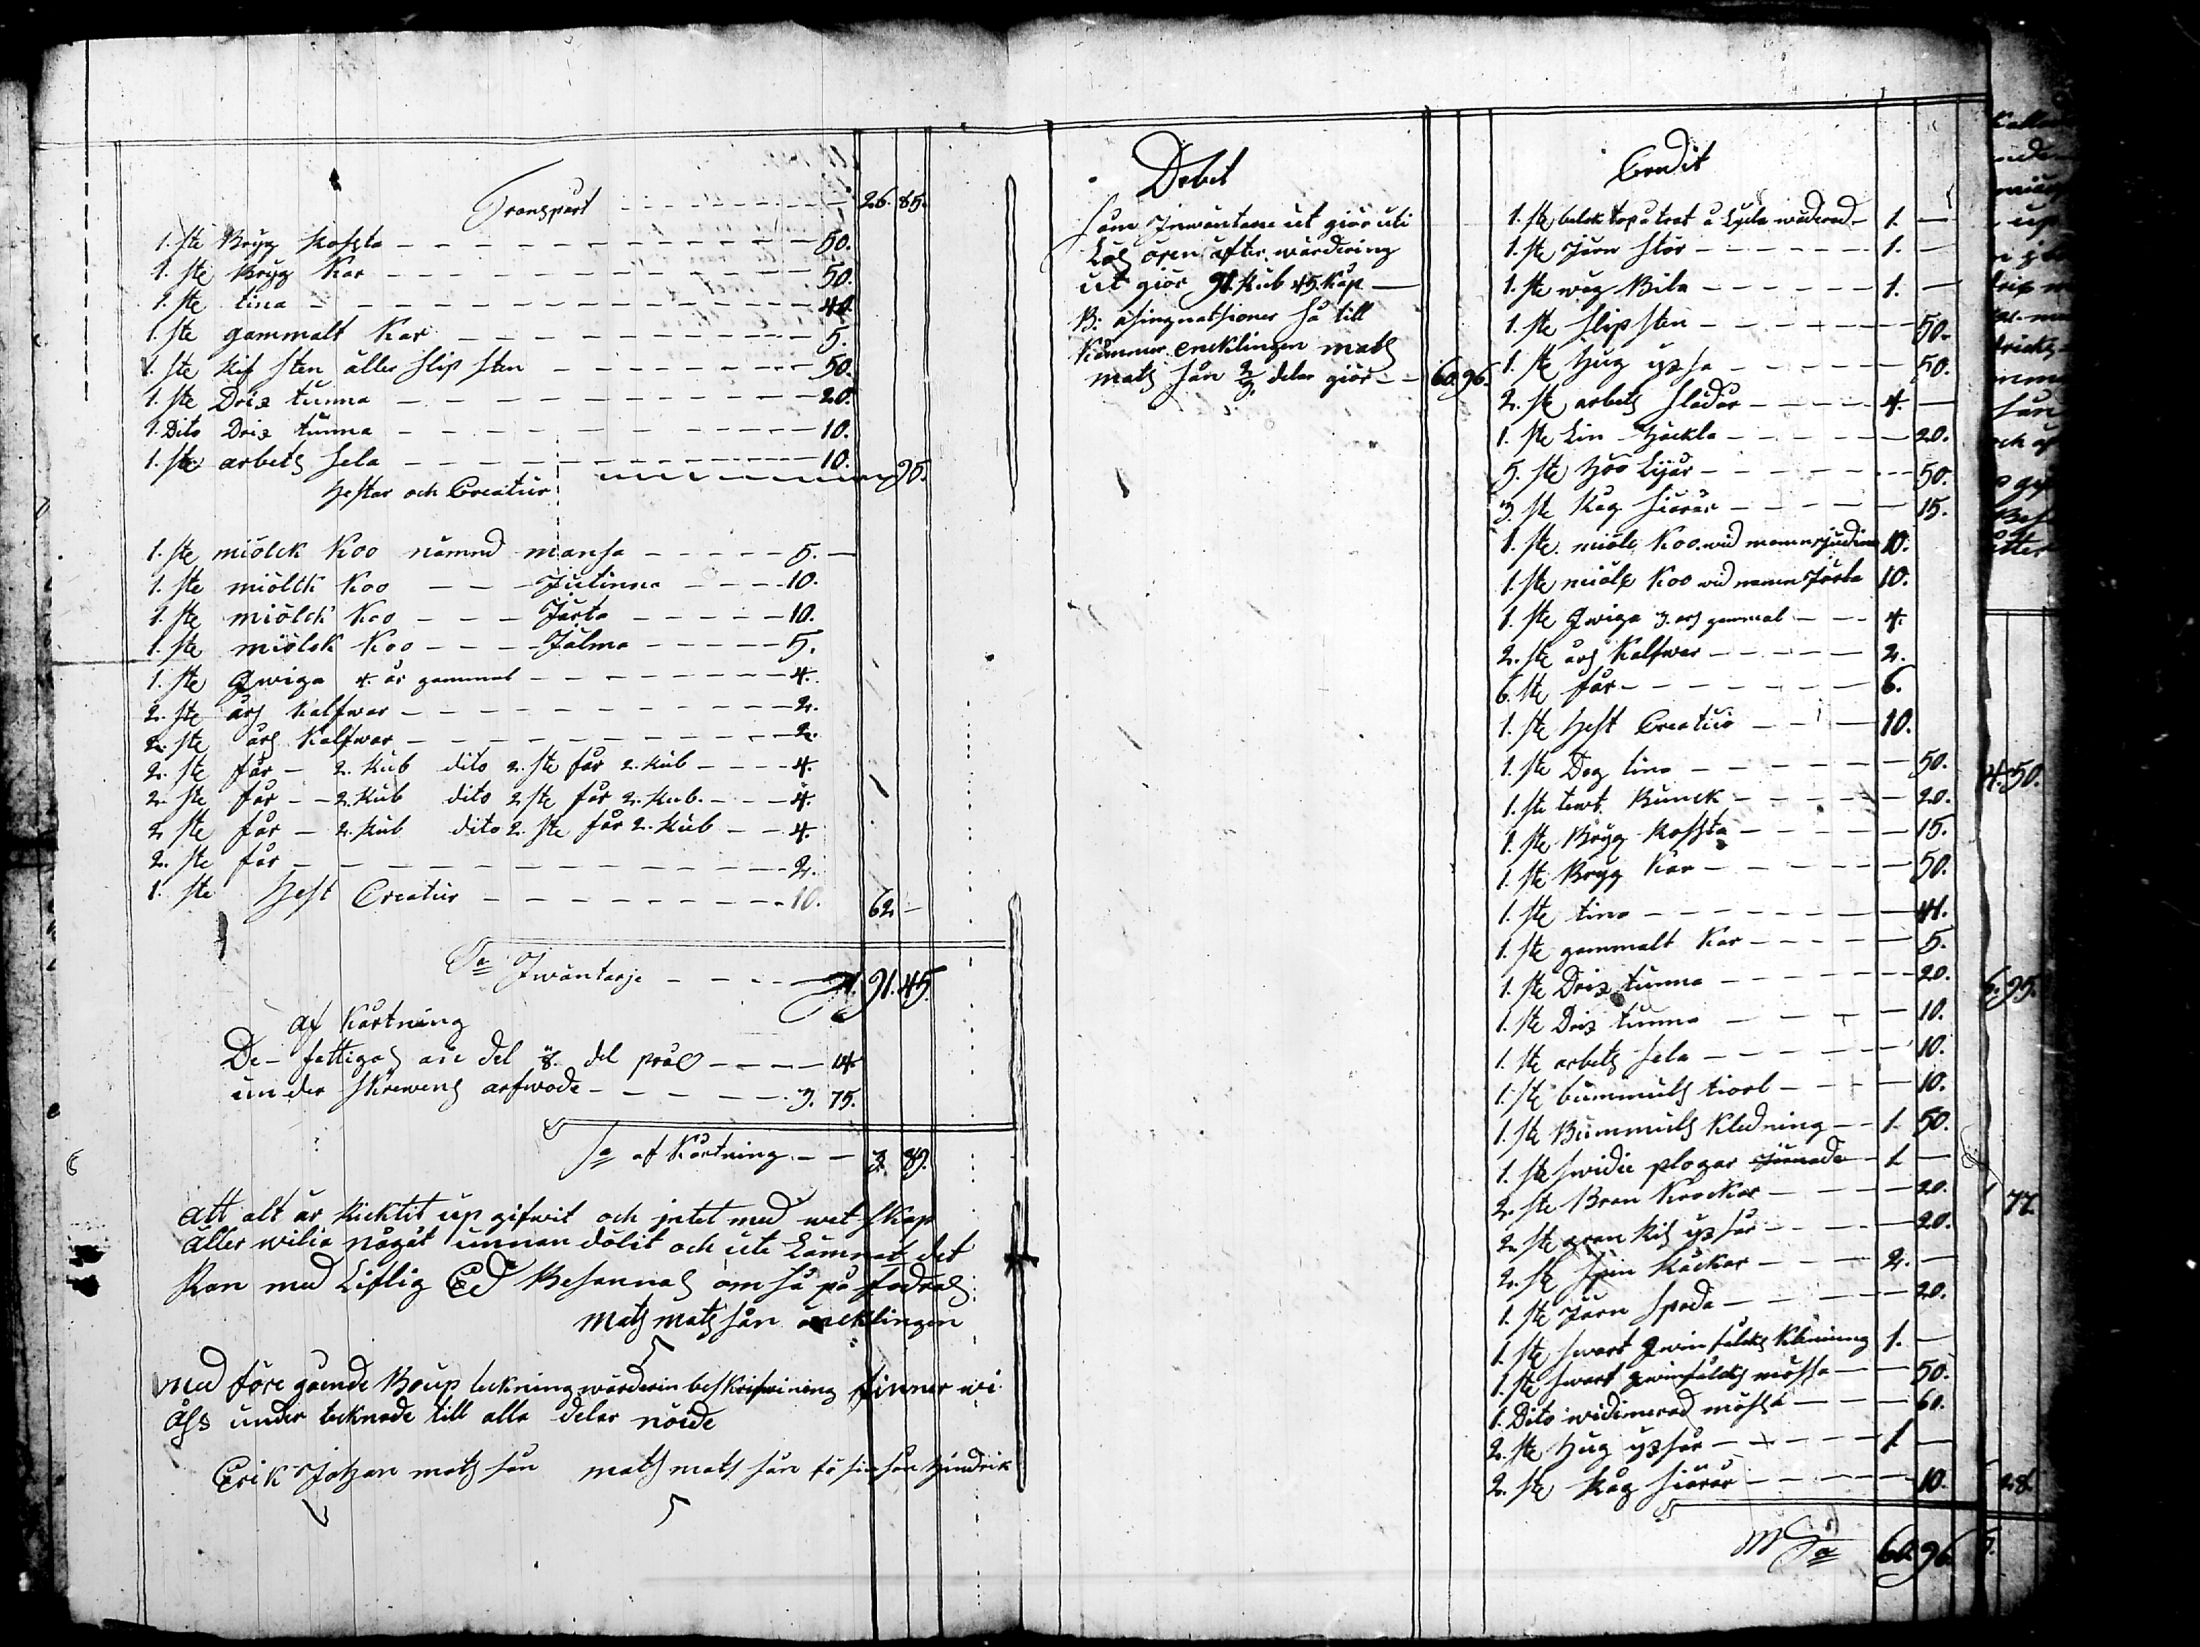 Transport - - - - - - - - 26. 85.
1. ste Bryg Kossta - - - - - - - - 50.
1. ste Bryg Kar - - - - - - - - 50.
1. ste tina - - - - - - - - 40.
1. ste gammalt Kar - - - - - - - - 5.
1. ste Rif sten äller slip sten - - - - - - 50.
1. ste Drix tunna - - - - - - - - 20.
1. Dito Drix tunna - - - - - - - - 10.
1. ste arbets sela - - - - - - - - 10.
95.
Hestar och Creatur
1. ste miölck Koo nämnd mansa - - - - - 5. -
1. ste miölck Koo - - - Jutinna - - - - 10.
1. ste miölck Koo - - - Järta - - - - - 10.
1. ste miölck Koo - - - Jälma - - - - - 5.
1. ste qwiga 4. år gammal - - - - - - - 4.
2. ste års Kalfwar - - - - - - - - 2.
2. ste års Kalfwar - - - - - - - - 2.
2. ste får - 2. Rub dito 2. ste får 2. Rub - - - 4.
2. ste får - - 2. Rub dito 2 ste får 2. Rub. - - - 4.
2 ste får - 2. Rub dito 2. ste får 2. Rub - - 4.
2. ste får - - - - - - - - 2.
1. ste Hest Creatur - - - - - - - - 10. 62 -
Sa Inwäntarje - - - - 91. 45.
af Kortning
De fattigas ⅛ del - - - - 14
under skrewens arfwode - - - - - 3. 75.
Sa af Kortning - - 3. 89.
att alt är Ricktit up gifwit och intet med wet skap
äller wilia någåt unnan dölit och ute Lämnat det
Kan med Liflig Ed Besannas om så på fodras
Mats mats sån äncklingen
med före gående Boup teckning wärderin beskrifwining finner wi
åss under tecknade till alla delar nöide
Erik Johan mats sån mats mats sån för sin sån Hindrik
Debet
som Inwäntane ut giör uti
Lös ören äfter wärdering
ut giör 91. Rub 45. Kop -
B: asingnatsioner så till
Kommer encklingen mats
mats sån ⅔ delar giör - - 60. 96.
Credit
1. ste 1. -
1. ste Järn stör - - - - - - 1. -
1. ste wäg Bila - - - - - - 1. -
1. ste slip sten - - - - - - 50.
1. ste Hug yxsa - - - - - 50.
2. ste arbets slädar - - - - - 4. -
1. ste Lin Häckla - - - - - - 20.
5. ste Höö Lijar - - - - - - 50.
3. ste Råg siärar - - - - - 15.
1. ste miölk Koo wid namn 10.
1. ste miölk Koo wid namn Järta 10.
1. ste qwiga 3. års gammal - - - 4.
2. ste års Kalfwar - - - - - 2.
6. ste får - - - - - - - 6.
1. ste Hest Creatur - - - - 10.
1. ste Deg tino - - - - - - 50.
1. ste Bunck - - - - - 20.
1. ste Bryg Kossta - - - - - 15.
1. ste Bryg Kar - - - - - - 50.
1. ste tino - - - - - - - 41.
1. ste gammalt Kar - - - - - 5.
1. ste Drix tunna - - - - - 20.
1. ste Drix tunna - - - - - 10.
1. ste arbets sela - - - - - 10.
1. ste bummuls tiorl - - - - 10.
1. ste Bummuls Kledning - - 1. 50.
1. ste plogar 1. -
2. ste Bran Krockar - - - - 20.
2. ste gran Ris yxsar - - - - 20.
2. ste Spin Råckar - - - - 2. -
1. ste Järn Spada - - - - - 20.
1. ste swart qwinfålcks Klädning 1. -
1. ste swart qwinfålcks mössa - - 50.
1. Dito widimerad mössa - - - 60.
2. ste Hug yxsar - - - - - 1. -
2. ste Råg siärar - - - - - 10.
Sa 60. 96.
4. 50.
95.
77
28.